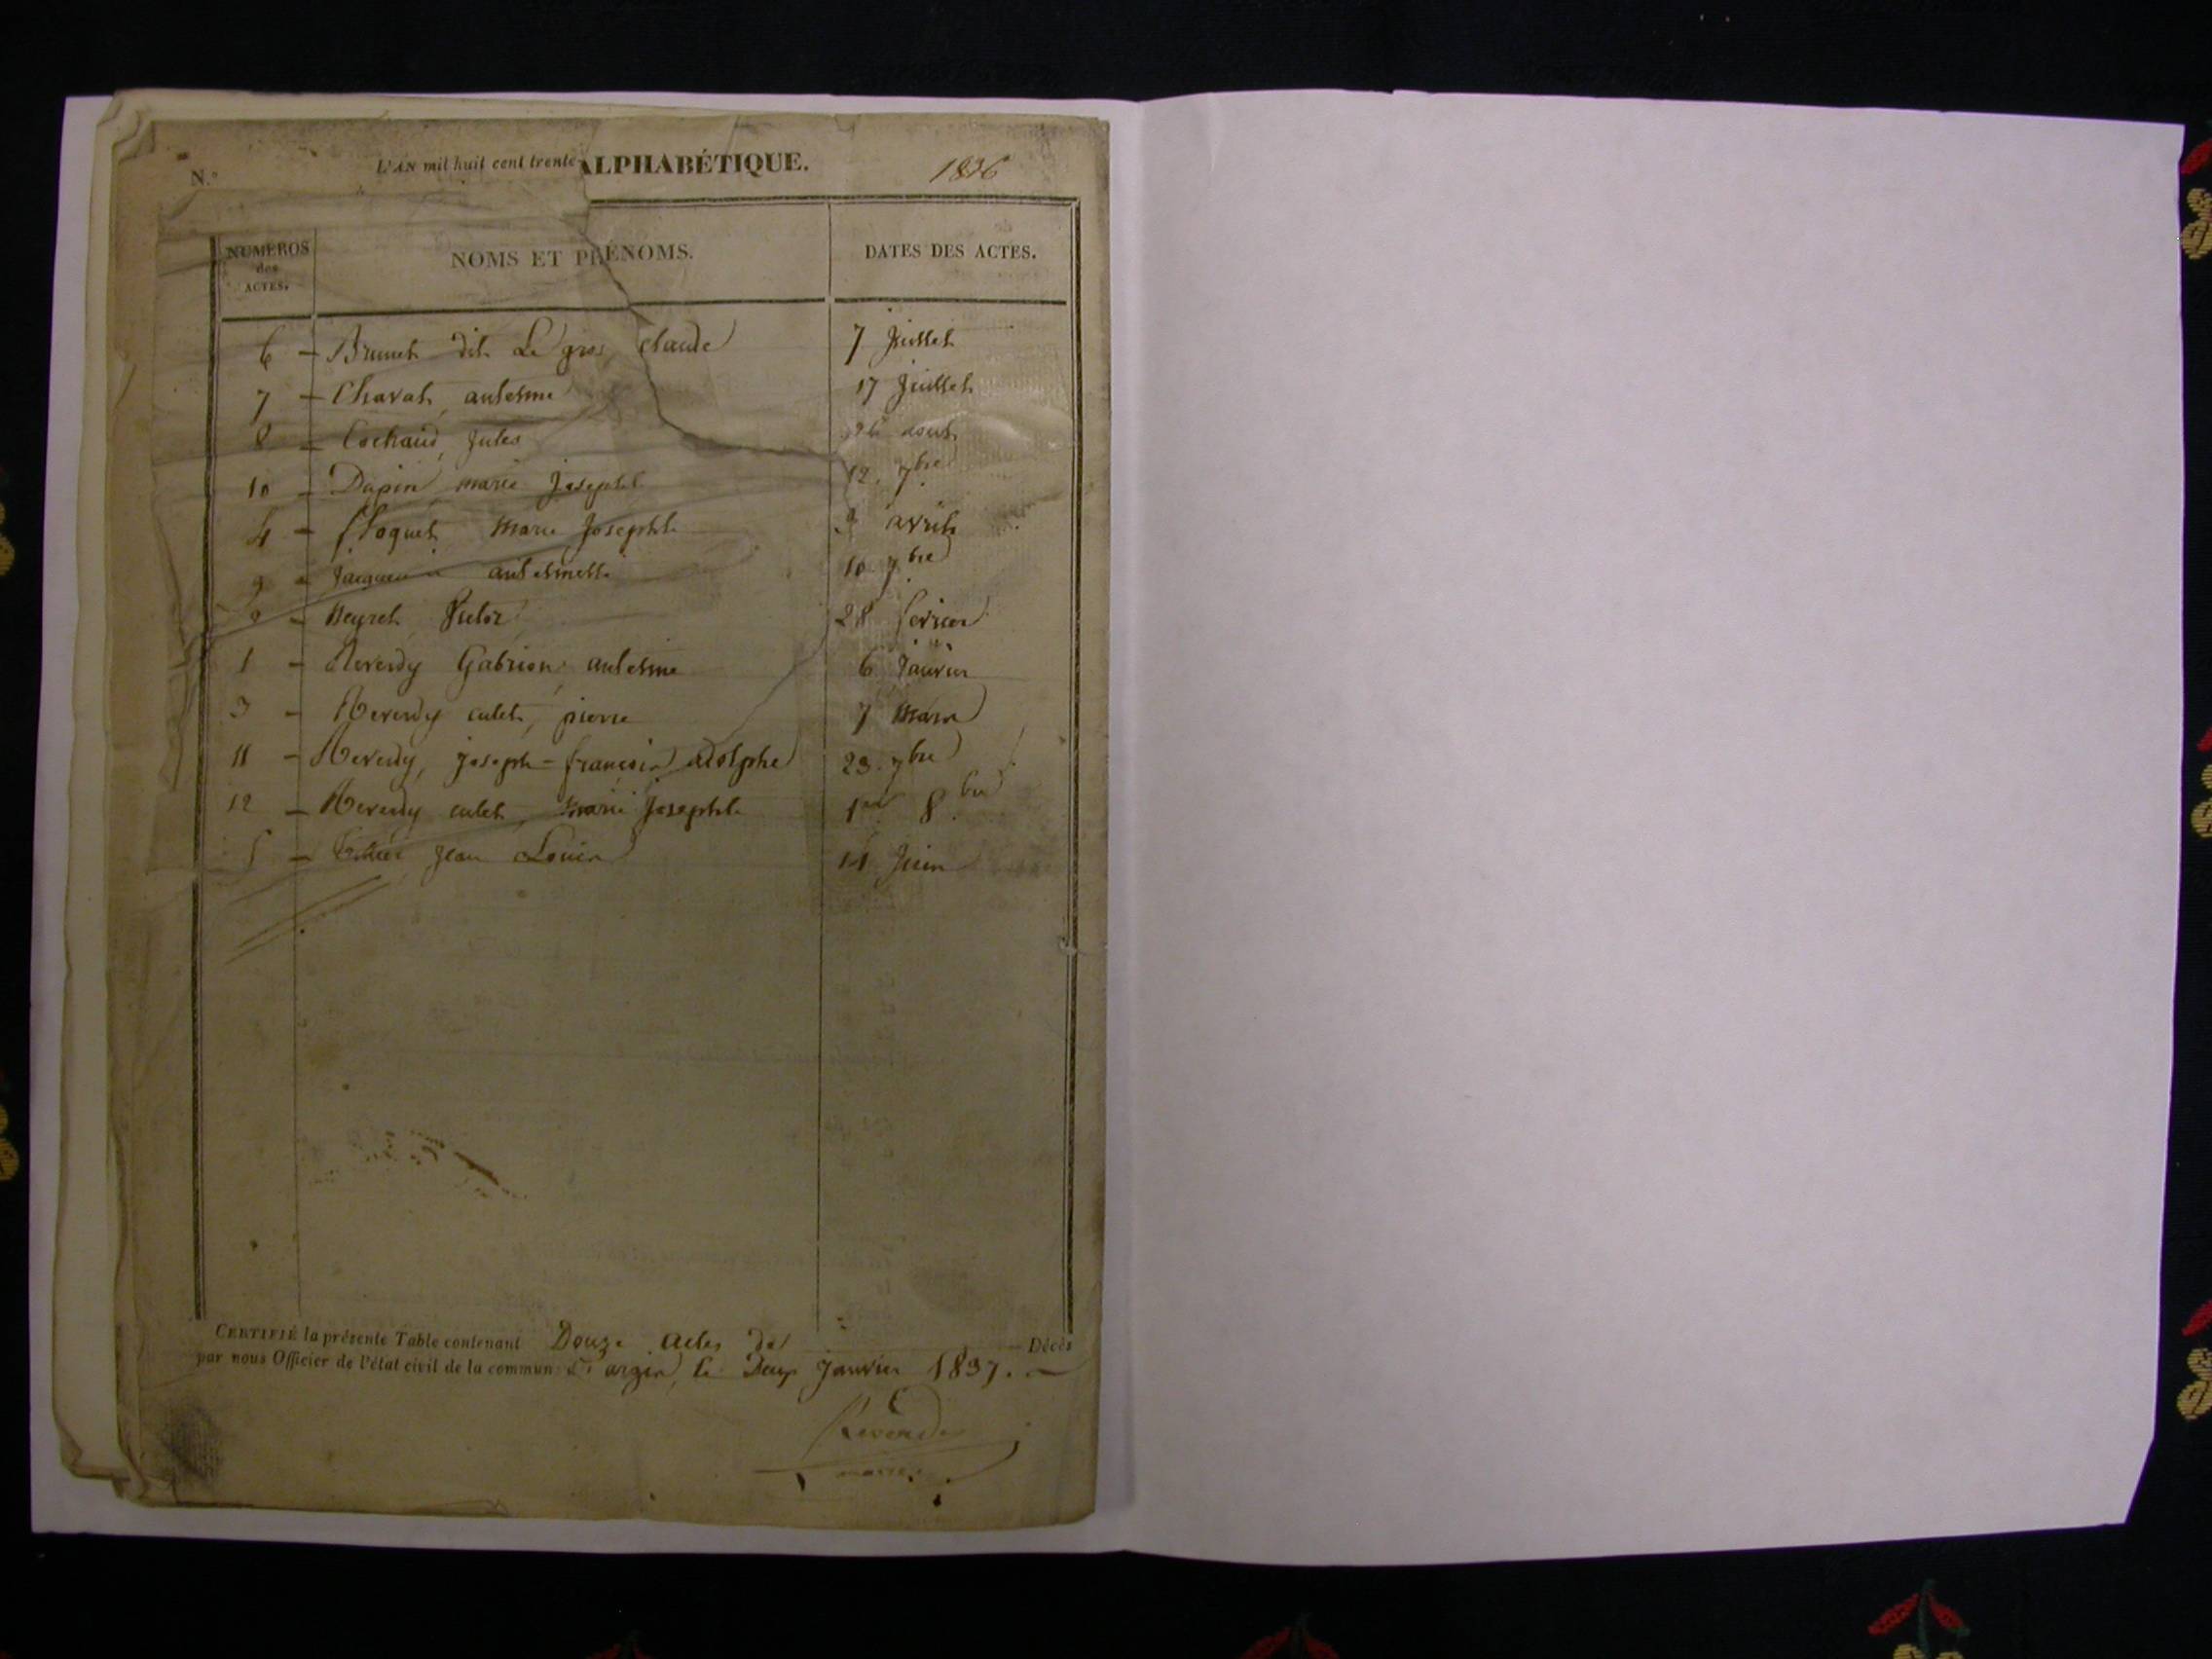 N.° L'AN mil huit cent trente ALPHABÉTIQUE. 1836
NUMÉROS des ACTES. NOMS ET PRÉNOMS. DATES DES ACTES.
6 — Brunet dit Le gros, claude 7 Juillet
7 — Charat, antelme 17 Juillet
8 — Cochaud, Jules 26 aout
10 — Dapin, marie Josephte 12. 7bre
4 — floquet Marie Josephte 9 avril
9 — antelmette 10 7bre
2 — Neyret Victor 28 fevrier
1 — Reverdy Gabrion, antelme 6 Janvier
3 — Reverdy culet, pierre 7 Mars
11 — Reverdy, joseph=françois adolphe 23. 7bre
12 — Reverdy culet, marie Josephte 1er 8.bre
5 — Jean Louis 11 Juin
CERTIFIÉ la présente Table contenant Douze actes de Décès
par nous Officier de l'état civil de la commun d'argis, le Deux Janvier 1837. —
Reverdy
maire